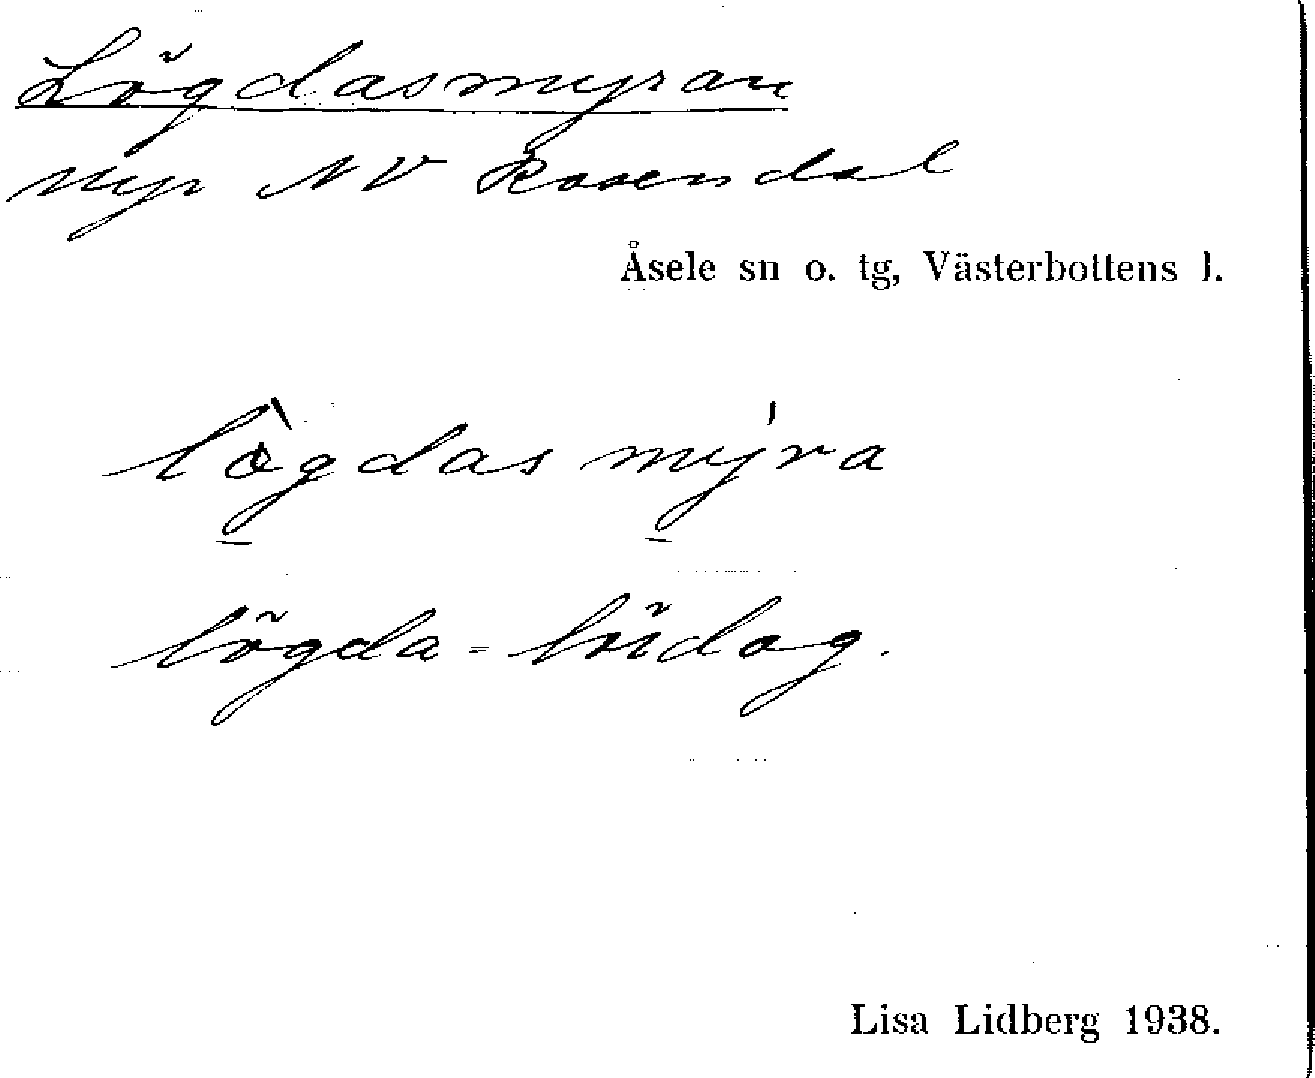 Lögdasmyran
myr NV Rosendal
Åsele sn o. tg, Västerbottens l.
lògdasmýra
lögda = lördag.
Lisa Lidberg 1938.